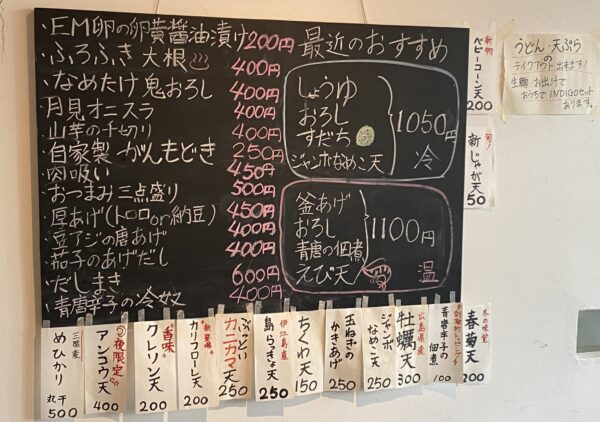 ・EM卵の卵黄醤油漬け 200円
・ふろふき大根 400円
・なめたけ鬼おろし 400円
・月見オニスラ 400円
・山芋の千切り 400円
・自家製がんもどき 250円
・肉吸い 450円
・おつまみ三点盛り 500円
・厚あげ(トロロor納豆) 450円
・豆アジの唐あげ 400円
・茄子のあげだし 400円
・だしまき 600円
・青唐辛子の冷奴 400円
最近のおすすめ
しょうゆ
おろし
すだち
ジャンボなめこ天
1050円
冷
釜あげ
おろし
青唐の佃煮
えび天
1100円
温
ベビーコーン天
200
旬!
新じゃが天
50
うどん・天ぷら
のテイクアウト出来ます!
生麺・お出汁で
おうちでINDIGOセット
あります。
三陸産
めひかり
丸干
500
夜限定
アンコウ天
400
香味
クレソン天
200
カリフラワー天
200
ぶっとい
カニカマ天
250
伊江島産
島らっきょ天
250
ちくわ天
150
玉ねぎの
かきあげ
250
ジャンボ
なめこ天
250
広島県産
牡蠣天
300
青唐辛子の
佃煮
100
冬の味覚
春菊天
200